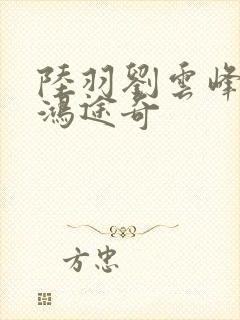 陸羽劉雲峰
鴻途奇
方忠